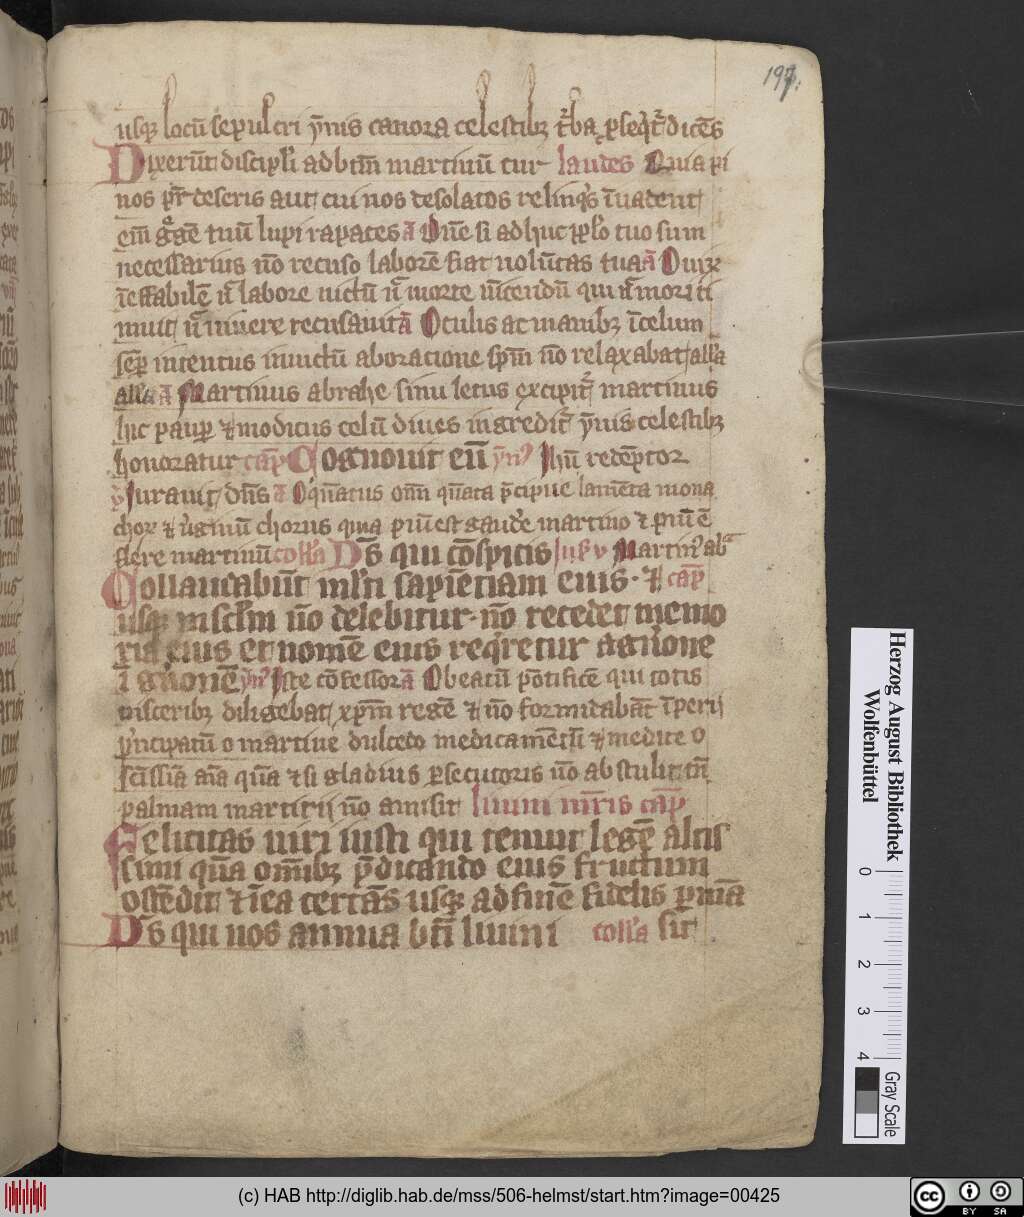 197
usq; locū sepulcri ȳnis canora celestib; t̾ba ꝑseq̄t̾ dicēs
Dixerūt discipl̾i ad btm̄ martinū cur laudes Quia pi
nos pr̄ deseris aut cui nos desolatos relinq̾s īuadent
em̄ gͣgē tuū lupi rapaces ā Dn̄e si adhuc pplo tuo sum
necessarius nō recuso laborē fiat uolūtas tua ā O uiꝝ
īeffabilē n̄ labore uictū n̄ morte uīcendū qui n̄ mori ti
muit n̄ uiuere recusauit ā Oculis ac manib; ī celum
sēp intentus inuictū ab oratione spm̄ nō relaxabat all̾a
all̾a ā Martinus abrahe sinu letus excipit̾ martinus
hic paup̄ ⁊ modicus celū diues ingredit̾ ȳnis celestib;
honoratur cap̄ Cognouit eū ȳn9 Jhū redēptor
ꝟ Jurauit dn̄s ā O quātus om̄ quāta p̄cipue lamēta mona
chor ⁊ u̾ginū chorus quia piū est gaude̾ martino ⁊ piū ē
flere martinū coll̾a Ds̄ qui cōspicis
Collaudabūt ml̾ti sapiētiam eius · ⁊ cap̄
usq; in sclm̄ nō delebitur · nō recedet memo
ria eius et nomē eius req̾retur a gn̾one
ī gn̾onē ȳn9 Iste cōfessor ā O beatū pōtificē qui totis
uisceribʒ diligebat xp̄m regē ⁊ nō formidabāt īperij
p̾ncipatū o martine dulcedo medicamētū ⁊ medice o
sc̄issīa aīa quā ⁊si gladius ꝑsecutoris nō abstulit tn̄
palmam martirij nō amisit
Felicitas uiri iusti qui tenuit legē altis
simi quā om̄ibʒ p̄dicando eius fructum
ostēdit ⁊ ī ea certās usq; ad finē fidelis ꝑmā
Ds̄ qui nos annua bt̄i coll̾a sit
Herzog August Bibliothek
Wolfenbüttel
0 1 2 3 4
Gray Scale
(c) HAB http://diglib.hab.de/mss/506-helmst/start.htm?image=00425
cc BY SA